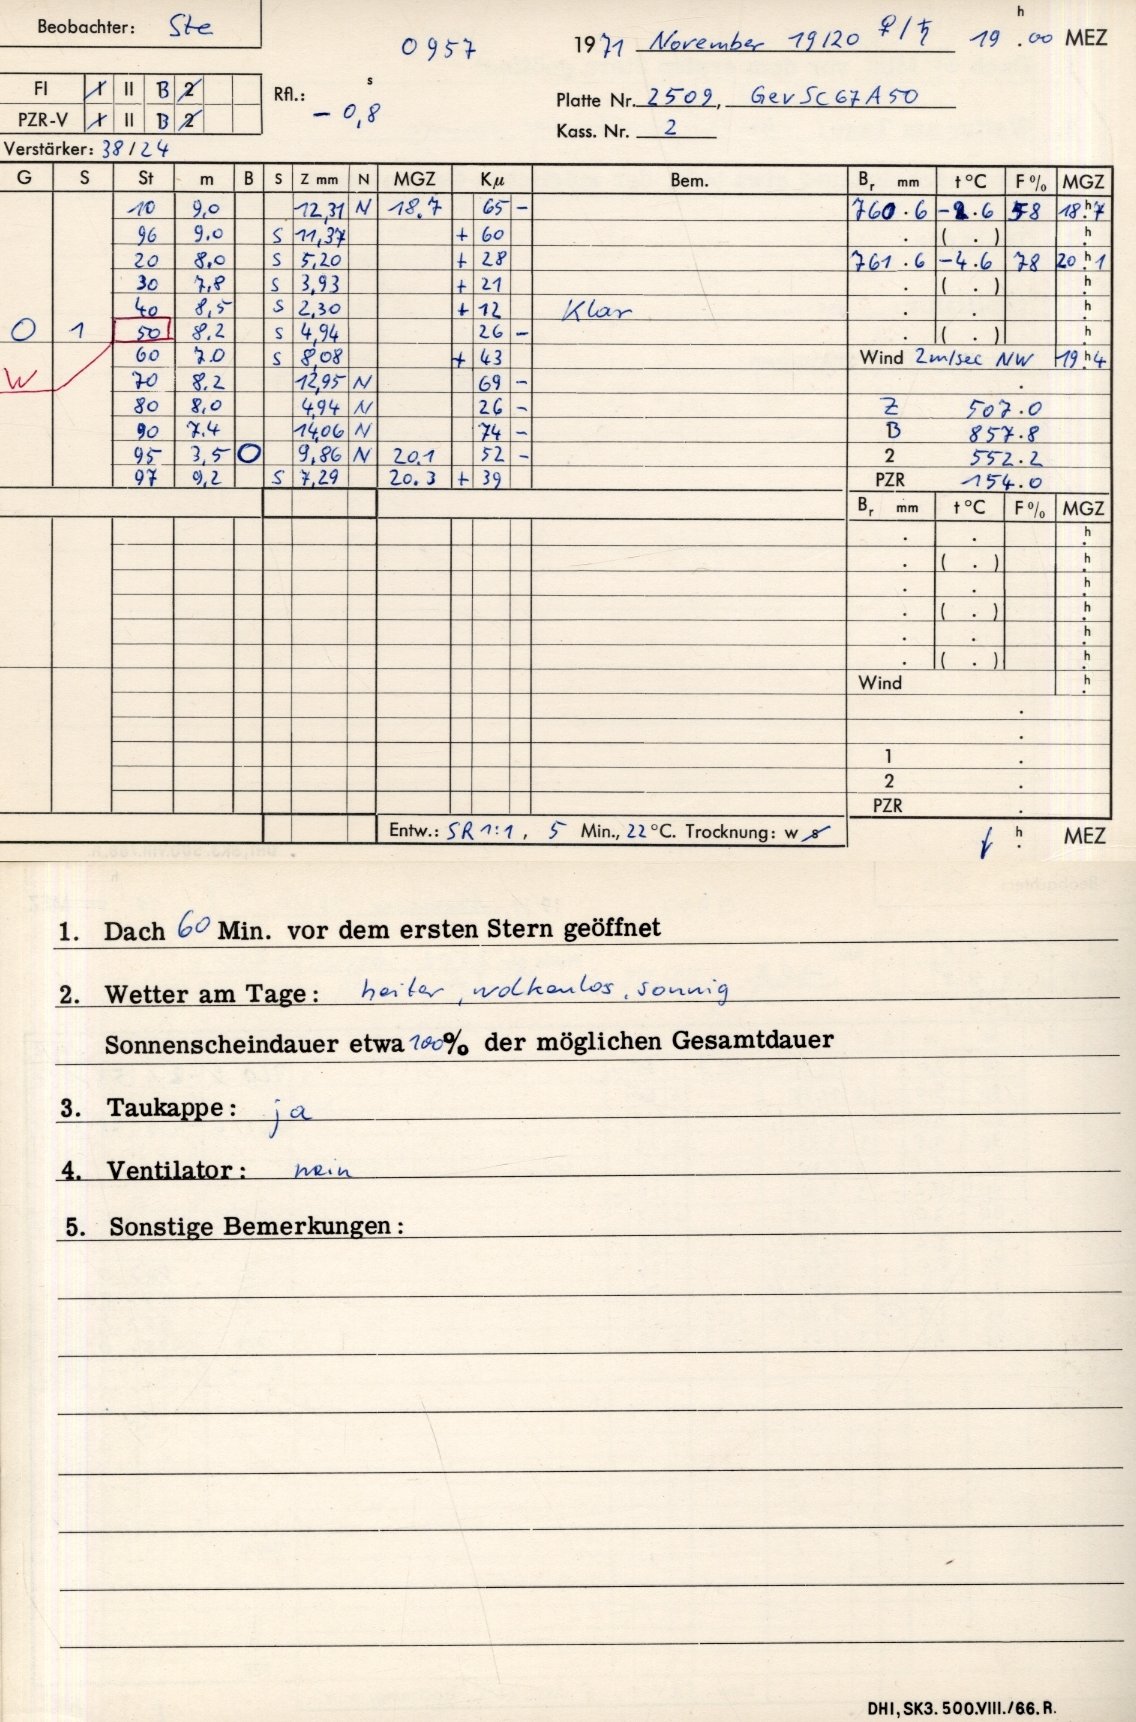 Beobachter: Ste
0957
1971 November 19/20 ♀/♄ 19 h . 00 MEZ
FI I II B 2
PZR-V I II B 2
Rfl.: - 0,8 s
Platte Nr. 2509, GevSc67A50
Kass. Nr. 2
Verstärker: 38/24
G S St m B S Z mm N MGZ Kμ Bem. Br mm t°C F% MGZ
10 9,0 12,31 N 18.7 65 - 760.6 -2.6 58 18h.7
96 9.0 S 11,37 + 60 . ( . ) h.
20 8,0 S 5,20 + 28 761.6 -4.6 78 20h.1
30 7,8 S 3,93 + 21 . ( . ) h.
40 8,5 S 2,30 + 12 Klar . . h.
O 1 50 8.2 S 4,94 26 - . ( . ) h.
60 7.0 S 8,08 + 43 Wind 2m/sec NW 19h.4
W 70 8,2 12,95 N 69 - .
80 8,0 4,94 N 26 - Z 507.0
90 7.4 14,06 N 74 - B 857.8
95 3,5 O 9,86 N 20.1 52 - 2 552.2
97 9,2 S 7,29 20.3 + 39 PZR 154.0
Br mm t°C F% MGZ
. . h.
. ( . ) h.
. . h.
. ( . ) h.
. . h.
. ( . ) h.
Wind h.
.
.
1 .
2 .
PZR .
Entw.: SR 1:1, 5 Min., 22°C. Trocknung: w s
h . MEZ
1. Dach 60 Min. vor dem ersten Stern geöffnet
2. Wetter am Tage: heiter, wolkenlos, sonnig
Sonnenscheindauer etwa 100% der möglichen Gesamtdauer
3. Taukappe: ja
4. Ventilator: nein
5. Sonstige Bemerkungen:
DHI, SK3. 500.VIII./66. R.